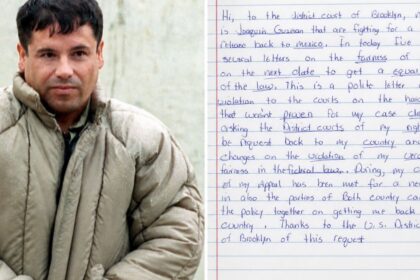 Hi, to the district court of Brooklyn,
is Joaquin Guzman that are fighting for a
release back to mexico. in today I've
several letters on the fairness of
on the next date to get a
of the law. This is a polite letter
violation to the courts on the
that wasn't proven for my case
asking the District courts of my
be request back to my country
changes on the violation of my
fairness in the federal law. During, my
of my Appeal has been met for a
in also the parties of Both country
the policy together on getting me back
country. Thanks to the U.S. District
of Brooklyn of this request